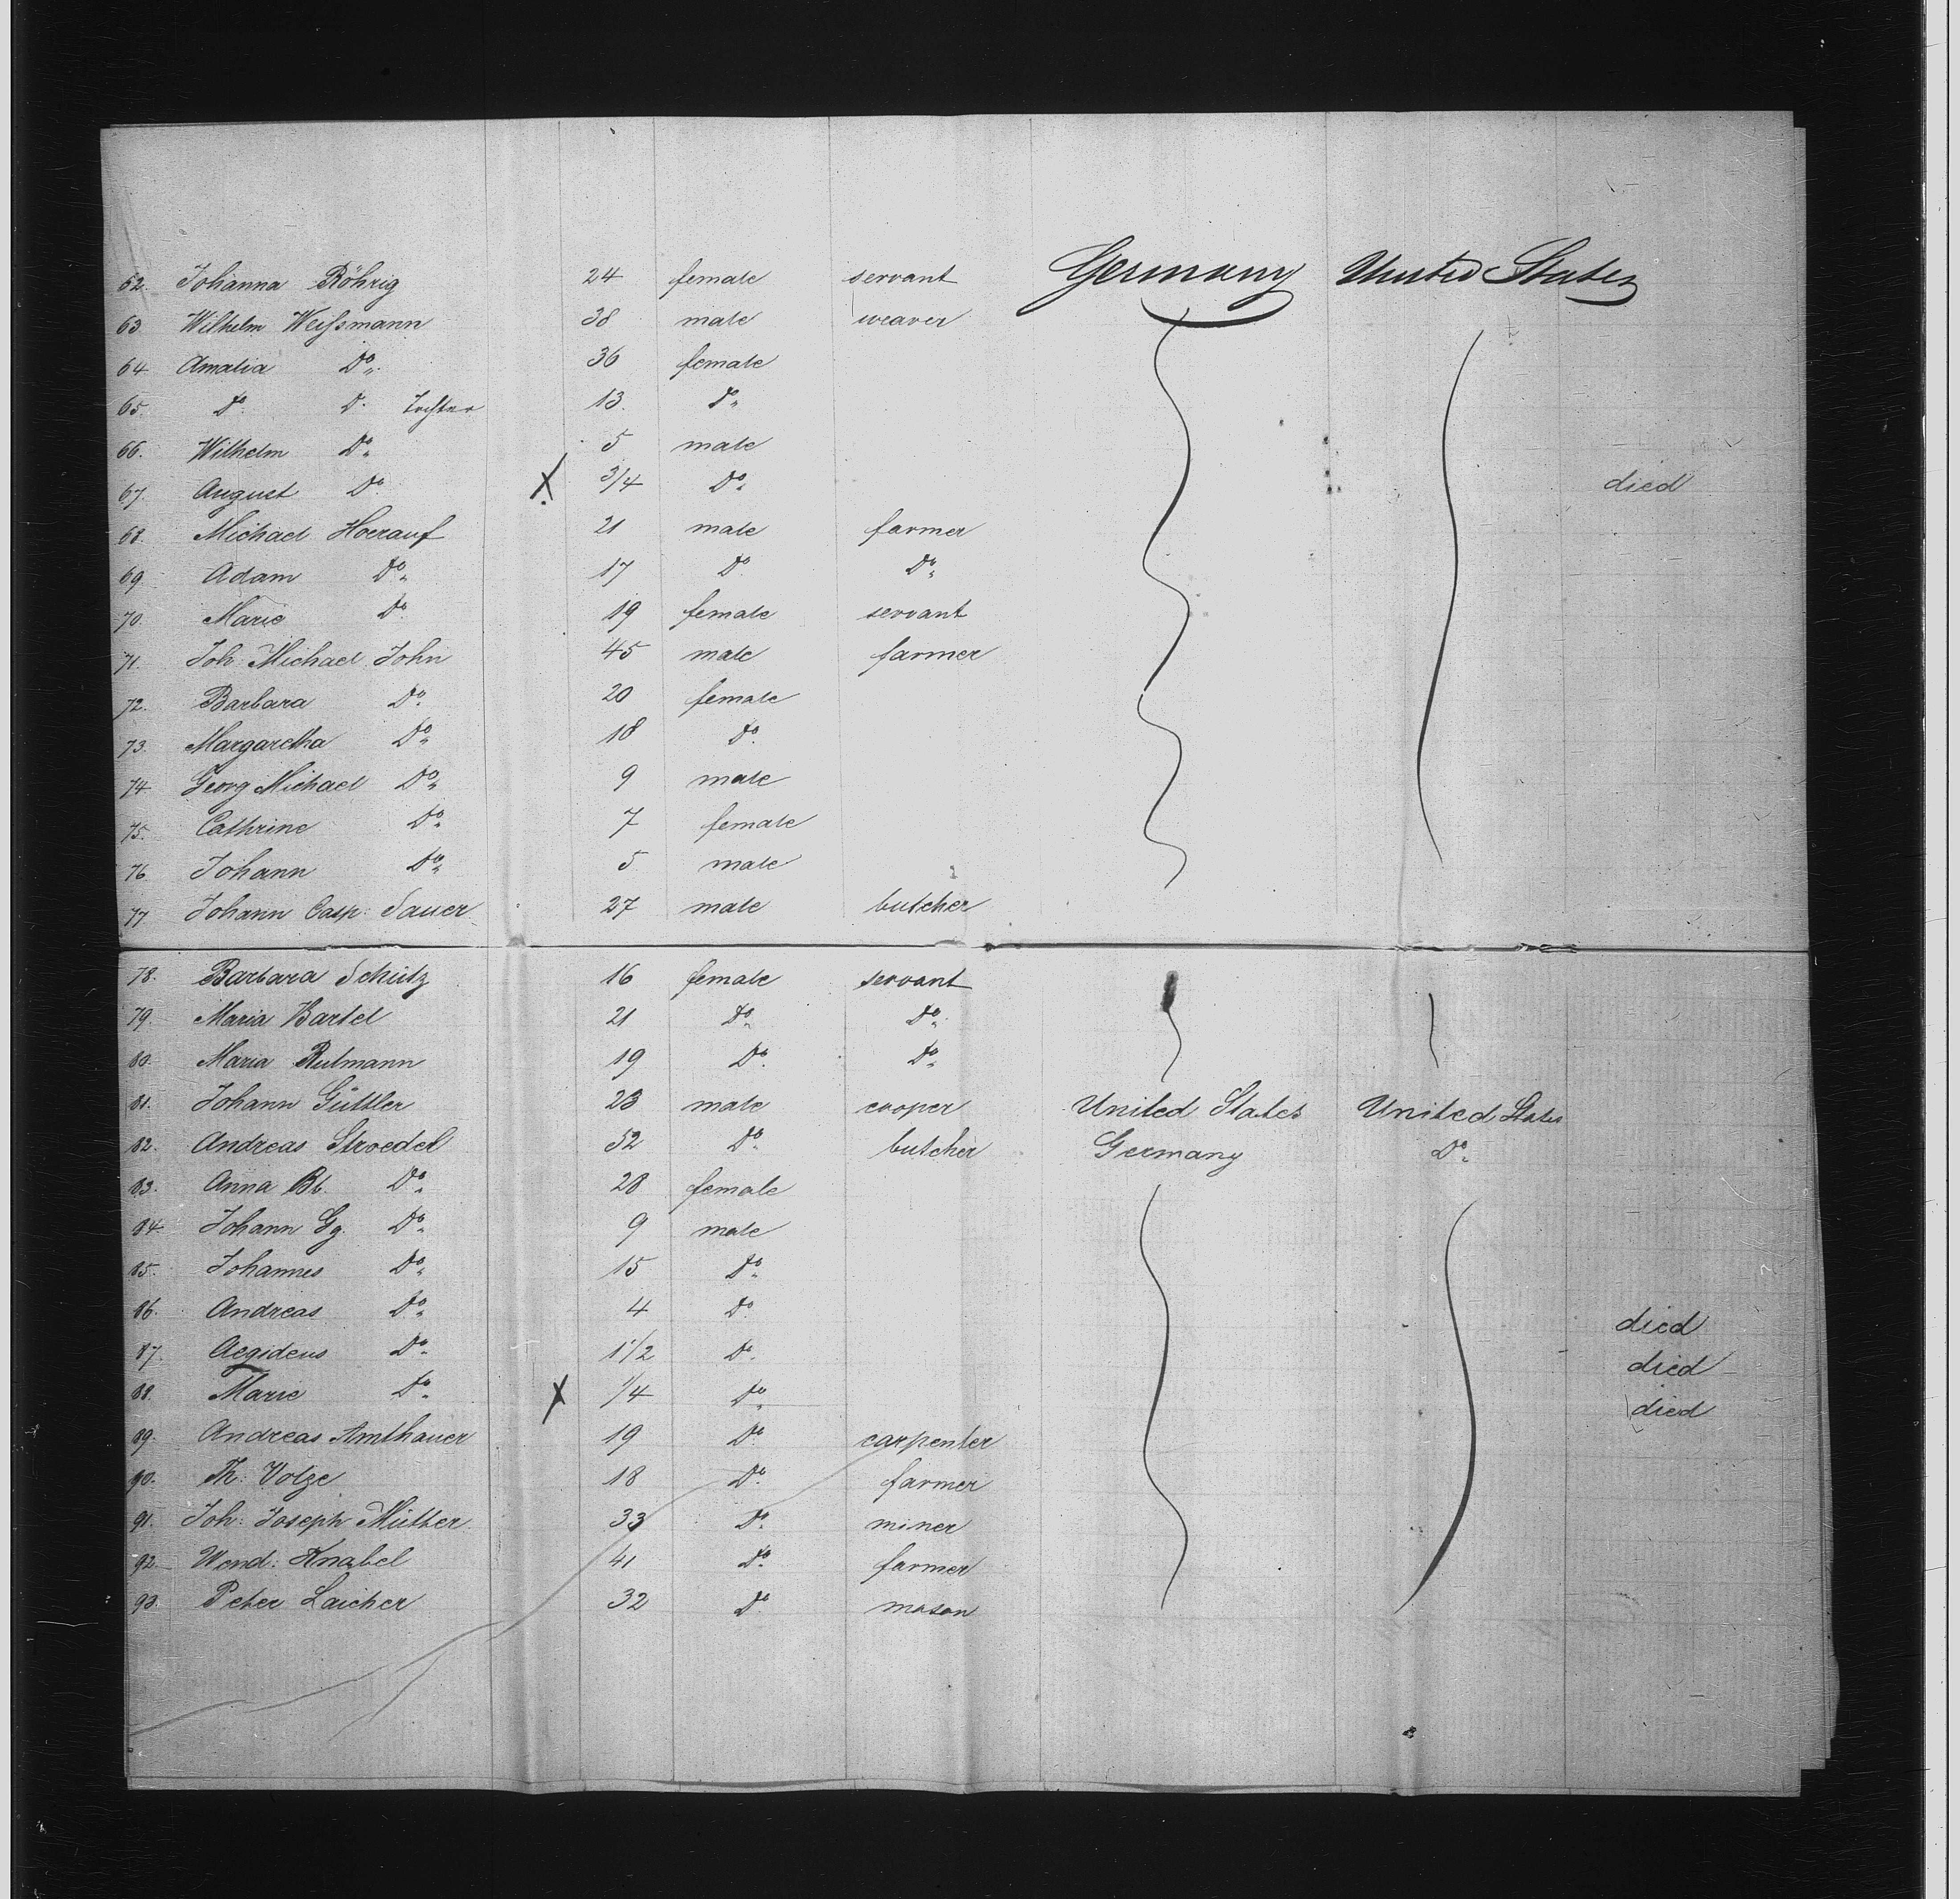 62. Johanna Röhrig 24 female servant Germany United States
63. Wilhelm Weiſsmann 38 male weaver
64. Amalia Do 36 female
65. Do Do Tochter 13. Do
66. Wilhelm Do 5 male
67. August Do X 3/4 Do died
68. Michael Hoerauf 21 male farmer
69. Adam Do 17 Do Do
70. Marie Do 19 female servant
71. Joh: Michael John 45 male farmer
72. Barbara Do 20 female
73. Margaretha Do 18 Do
74. Georg Michael Do 9 male
75. Cathrine Do 7 female
76. Johann Do 5 male
77. Johann Casp: Sauer 27 male butcher
78. Barbara Schütz 16 female servant
79. Maria Bartel 21 Do Do
80. Maria Rulmann 19 Do Do
81. Johann Güttler 23 male cooper United States United States
82. Andreas Stroedel 52 Do butcher Germany Do
83. Anna Bb. Do 28 female
84. Johann Gg. Do 9 male
85. Johannes Do 15 Do
86. Andreas Do 4 Do died
87. Aegideus Do 1 1/2 Do died
88. Marie Do X 1/4 Do died
89. Andreas Amthauer 19 Do carpenter
90. Th: Volze 18 Do farmer
91. Joh: Joseph Mütter 33 Do miner
92. Wend: Knabel 41 Do farmer
93. Peter Laicher 32 Do mason